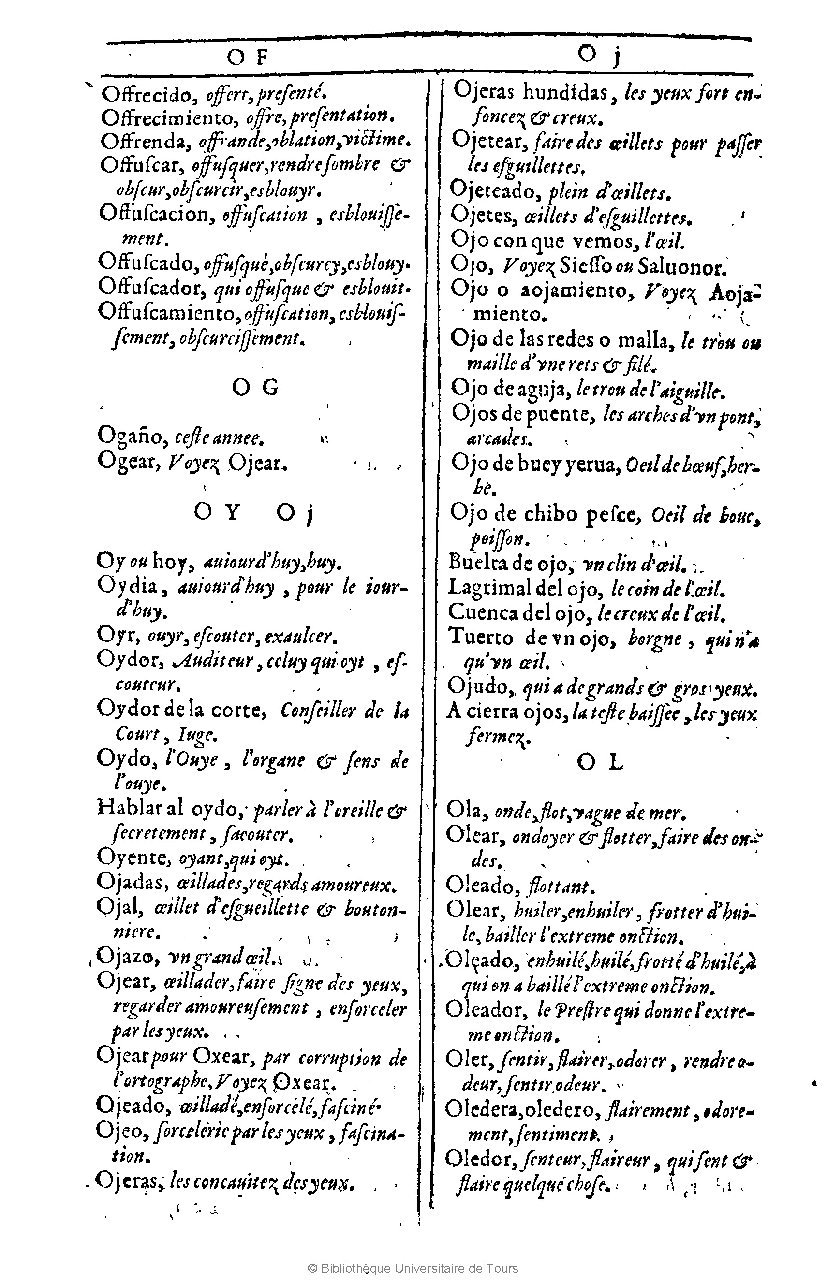 O F
Offrecido, offert, presenté.
Offrecimiento, offre, presentation.
Offrenda, offrande, oblation, victime.
Offuſcar, offuſquer, rendre ſombre &
obſcur, obſcurcir, esblouyr.
Offuſcacion, offuſcation, esblouiſſe-
ment.
Offuſcado, offuſqué, obſcurcy, esblouy.
Offuſcador, qui offuſque & esblouit.
Offuſcamiento, offuſcation, esblouiſ-
ſement, obſcurciſſement.
O G
Ogaño, ceſte annee.
Ogear, Voyez Ojear.
O Y O j
Oy ou hoy, auiourd'huy, huy.
Oydia, auiourd'huy, pour le iour-
d'huy.
Oyr, ouyr, eſcouter, exaulcer.
Oydor, Auditeur, celuy qui oyt, eſ-
couteur.
Oydor de la corte, Conſeiller de la
Court, Iuge.
Oydo, l'Ouye, l'organe & ſens de
l'ouye.
Hablar al oydo, parler à l'oreille &
ſecretement, ſacouter.
Oyente, oyant, qui oyt.
Ojadas, œillades, regards amoureux.
Ojal, œillet d'eſgueillette & bouton-
niere.
Ojazo, vn grand œil.
Ojear, œillader, faire ſigne des yeux,
regarder amoureuſement, enſorceler
par les yeux.
Ojear pour Oxear, par corruption de
l'ortographe, Voyez Oxear.
Ojeado, œilladé, enſorcelé, faſciné.
Ojeo, ſorcelerie par les yeux, faſcina-
tion.
Ojeras, les concauitez des yeux.
O j
Ojeras hundidas, les yeux fort en-
foncez & creux.
Ojetear, faire des œillets pour paſſer
les eſguillettes.
Ojeteado, plein d'œillets.
Ojetes, œillets d'eſguillettes.
Ojo con que vemos, l'œil.
Ojo, Voyez Sieſſo ou Saluonor.
Ojo o aojamiento, Voyez Aoja-
miento.
Ojo de las redes o malla, le trou ou
maille d'vne rets & filé.
Ojo de aguja, le trou de l'aiguille.
Ojos de puente, les arches d'vn pont,
arcades.
Ojo de buey yerua, Oeil de bœuf, her-
be.
Ojo de chibo peſce, Oeil de bouc,
poiſſon.
Buelta de ojo, vn clin d'œil.
Lagrimal del ojo, le coin de l'œil.
Cuenca del ojo, le creux de l'œil.
Tuerto de vn ojo, borgne, qui n'a
qu'vn œil.
Ojudo, qui a de grands & gros yeux.
A cierra ojos, la teſte baiſſee, les yeux
fermez.
O L
Ola, onde, flot, vague de mer.
Olear, ondoyer & flotter, faire des on-
des.
Oleado, flottant.
Olear, huiler, enhuiler, frotter d'hui-
le, bailler l'extreme onction.
Oleado, enhuilé, huilé, frotté d'huile, à
qui on a baillé l'extreme onction.
Oleador, le Preſtre qui donne l'extre-
me onction.
Oler, ſentir, flairer, odorer, rendre o-
deur, ſentir odeur.
Oledera, oledero, flairement, odore-
ment, ſentiment.
Oledor, ſenteur, flaireur, qui ſent &
flaire quelque choſe.
© Bibliothèque Universitaire de Tours